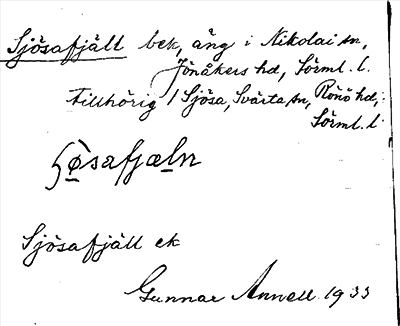 Sjösafjäll bek, äng i Nikolai sn,
Jönåkers hd, Sörml. l.
Tillhörig Sjösa, Svärta sn, Rönö hd,
Sörml. l.
Sjösafjäll ek
Gunnar Annell 1933